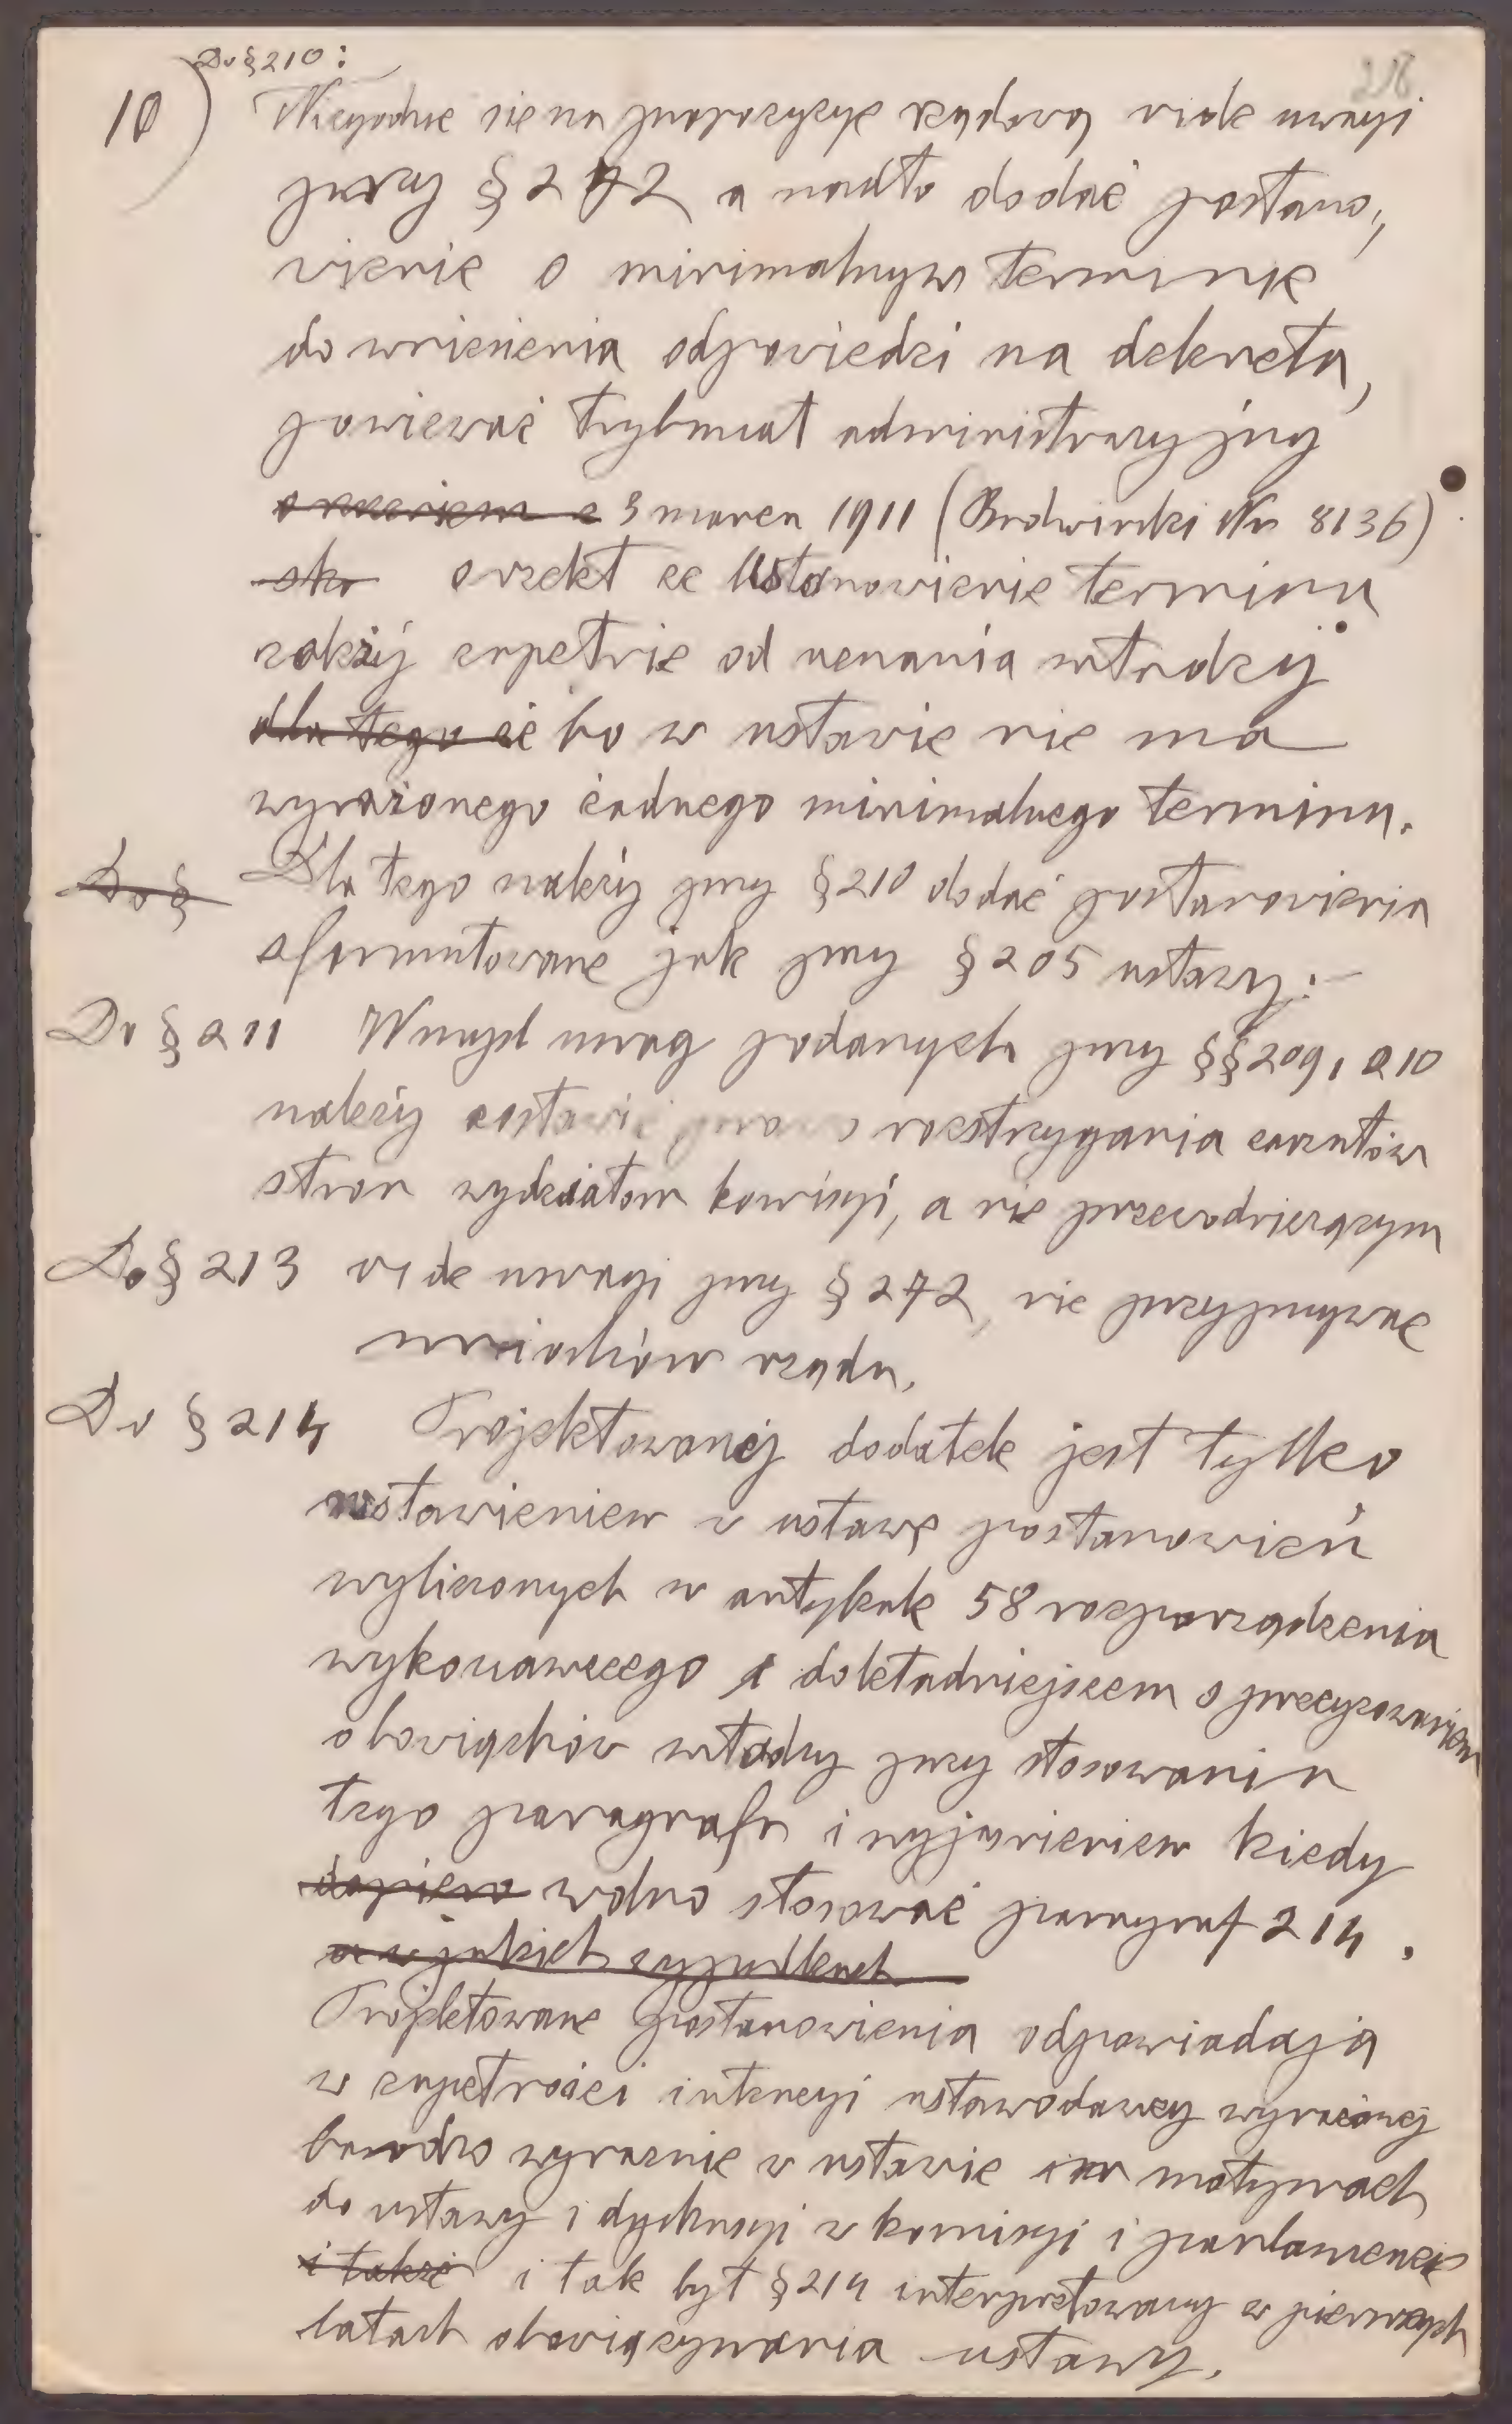 Do § 210:
10) Niezgodne się na propozycye rządową vide uwagi
przy § 272 a nadto dodać postano„
wienie o minimalnym terminie
do wniesienia odpowiedzi na dekreta,
ponieważ trybunał administracyjny
orzeczeniem z 3 marca 1911 (Budwiński Nr 8136)
orzekł że ustanowienie terminu
zależy zupełnie od uznania władzy
dla tego że bo w ustawie nie ma
wyrażonego żadnego minimalnego terminu.
Do § Dla tego należy przy § 210 dodać postanowienia
sformułowane jak przy § 205 ustawy.–
Do § 211 W myśl uwag podanych przy §§ 209, 210
należy zostawić prawo rozstrzygania zarzutów
stron wydziałom komisyi, a nie przewodniczącym
Do § 213 vide uwagi przy § 272, nie przyjmywać
wniosków rządu.
Do § 214 Projektowanéj dodatek jest tylko
wstawieniem w ustawę postanowień
wyliczonych w artykule 58 rozporządzenia
wykonawczego z dokładniejszem sprecyzowaniem
obowiązków władzy przy stosowaniu
tego paragrafu i wyjaśnieniem kiedy
dopiero wolno stosować paragraf 214.
a w jakich wypadkach
Projektowane postanowienia odpowiadają
w zupełności intencyi ustawodawcy wyrażonej
bardzo wyraznie w ustawie i w motywach
do ustawy i dyskusyi w komisyi i parlamencie
i także i tak był § 214 interpretowany w pierwszych
latach obowiązywania ustawy.